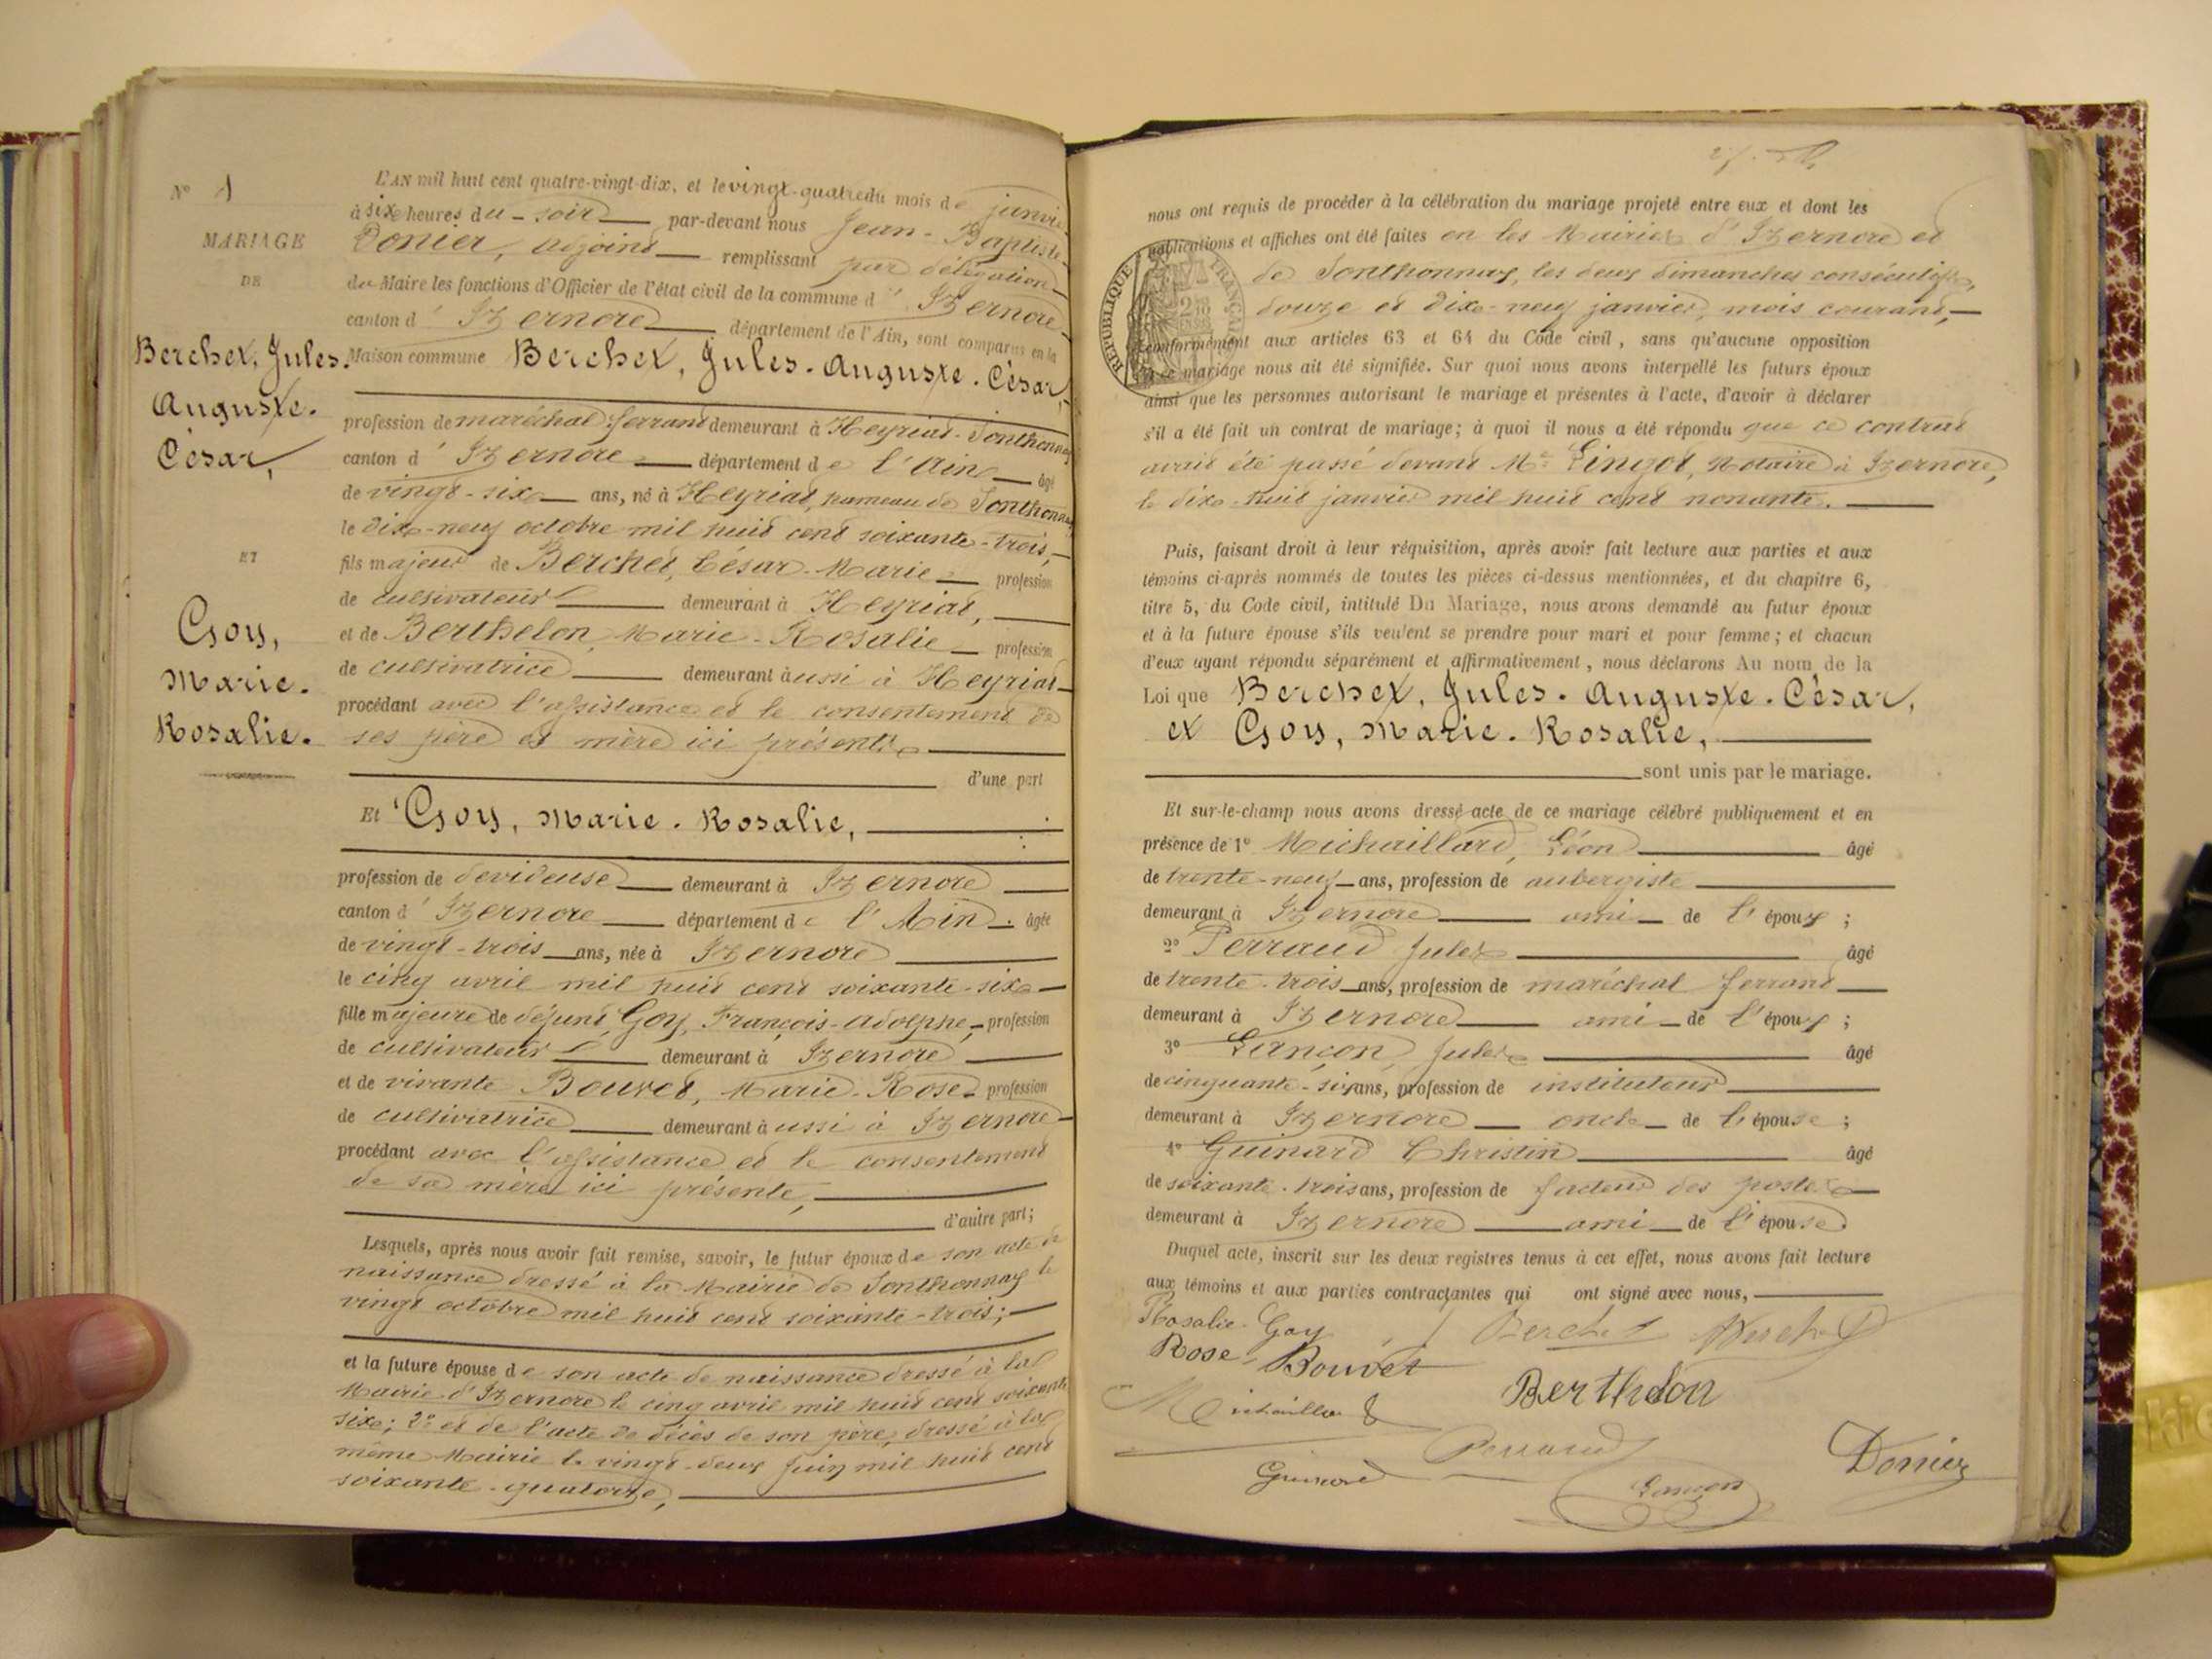 N° 1
MARIAGE
DE
Berchet, Jules.
Auguste.
César,
ET
Goy,
Marie.
Rosalie.
L'AN mil huit cent quatre-vingt-dix, et le vingt-quatre du mois de janvier
à six heures du - soir par-devant nous Jean-Baptiste
Donier, adjoint remplissant par délégation
du Maire les fonctions d'Officier de l'état civil de la commune d' Izernore
canton d' Izernore département de l'Ain, sont comparus en la
Maison commune Berchet, Jules. Auguste. César,
profession de maréchal ferrant demeurant à Heyriat-Sonthonnay
canton d' Izernore département de l'Ain âgé
de vingt-six ans, né à Heyriat, hameau de Sonthonnay
le dix-neuf octobre mil huit cent soixante-trois,
fils majeur de Berchet, César-Marie profession
de cultivateur demeurant à Heyriat,
et de Berthelon, Marie-Rosalie profession
de cultivatrice demeurant aussi à Heyriat
procédant avec l'assistance et le consentement de
ses père et mère ici présents
d'une part
Et Goy, Marie. Rosalie,
profession de devideuse demeurant à Izernore
canton d' Izernore département de l'Ain. âgée
de vingt-trois ans, née à Izernore
le cinq avril mil huit cent soixante-six
fille majeure de défunt Goy, François-Adolphe, profession
de cultivateur demeurant à Izernore
et de vivante Bouvet, Marie-Rose profession
de cultivatrice demeurant aussi à Izernore
procédant avec l'assistance et le consentement
de sa mère ici présente,
d'autre part;
Lesquels, après nous avoir fait remise, savoir, le futur époux de son acte de
naissance dressé à la Mairie de Sonthonnay le
vingt octobre mil huit cent soixante-trois;
et la future épouse de son acte de naissance dressé à la
Mairie d'Izernore le cinq avril mil huit cent soixante
six; 2° et de l'acte de décès de son père, dressé à la
même Mairie le vingt-deux juin mil huit cent
soixante-quatorze,
nous ont requis de procéder à la célébration du mariage projeté entre eux et dont les
publications et affiches ont été faites en les Mairies d'Izernore et
de Sonthonnay, les deux dimanches consécutifs,
douze et dix-neuf janvier, mois courant,
RÉPUBLIQUE FRANÇAISE
conformément aux articles 63 et 64 du Code civil, sans qu'aucune opposition
à ce mariage nous ait été signifiée. Sur quoi nous avons interpellé les futurs époux
ainsi que les personnes autorisant le mariage et présentes à l'acte, d'avoir à déclarer
s'il a été fait un contrat de mariage; à quoi il nous a été répondu que ce contrat
avait été passé devant Me Lingot, Notaire à Izernore,
le dix-huit janvier mil huit cent nonante.
Puis, faisant droit à leur réquisition, après avoir fait lecture aux parties et aux
témoins ci-après nommés de toutes les pièces ci-dessus mentionnées, et du chapitre 6,
titre 5, du Code civil, intitulé Du Mariage, nous avons demandé au futur époux
et à la future épouse s'ils veulent se prendre pour mari et pour femme; et chacun
d'eux ayant répondu séparément et affirmativement, nous déclarons Au nom de la
Loi que Berchet, Jules. Auguste. César,
et Goy, Marie. Rosalie,
sont unis par le mariage.
Et sur-le-champ nous avons dressé acte de ce mariage célébré publiquement et en
présence de 1° Michaillard, Léon âgé
de trente-neuf ans, profession de aubergiste
demeurant à Izernore ami de l'époux ;
2° Perraud Jules âgé
de trente-trois ans, profession de maréchal ferrant
demeurant à Izernore ami de l'époux ;
3° Lançon, Jules âgé
de cinquante-six ans, profession de instituteur
demeurant à Izernore oncle de l'épouse ;
4° Guinard Christin âgé
de soixante-trois ans, profession de facteur des postes
demeurant à Izernore ami de l'épouse
Duquel acte, inscrit sur les deux registres tenus à cet effet, nous avons fait lecture
aux témoins et aux parties contractantes qui ont signé avec nous,
Rosalie Goy Berchet Berchet
Rose Bouvet Berthelon
Michaillard Perraud
Guinard Lançon Donier